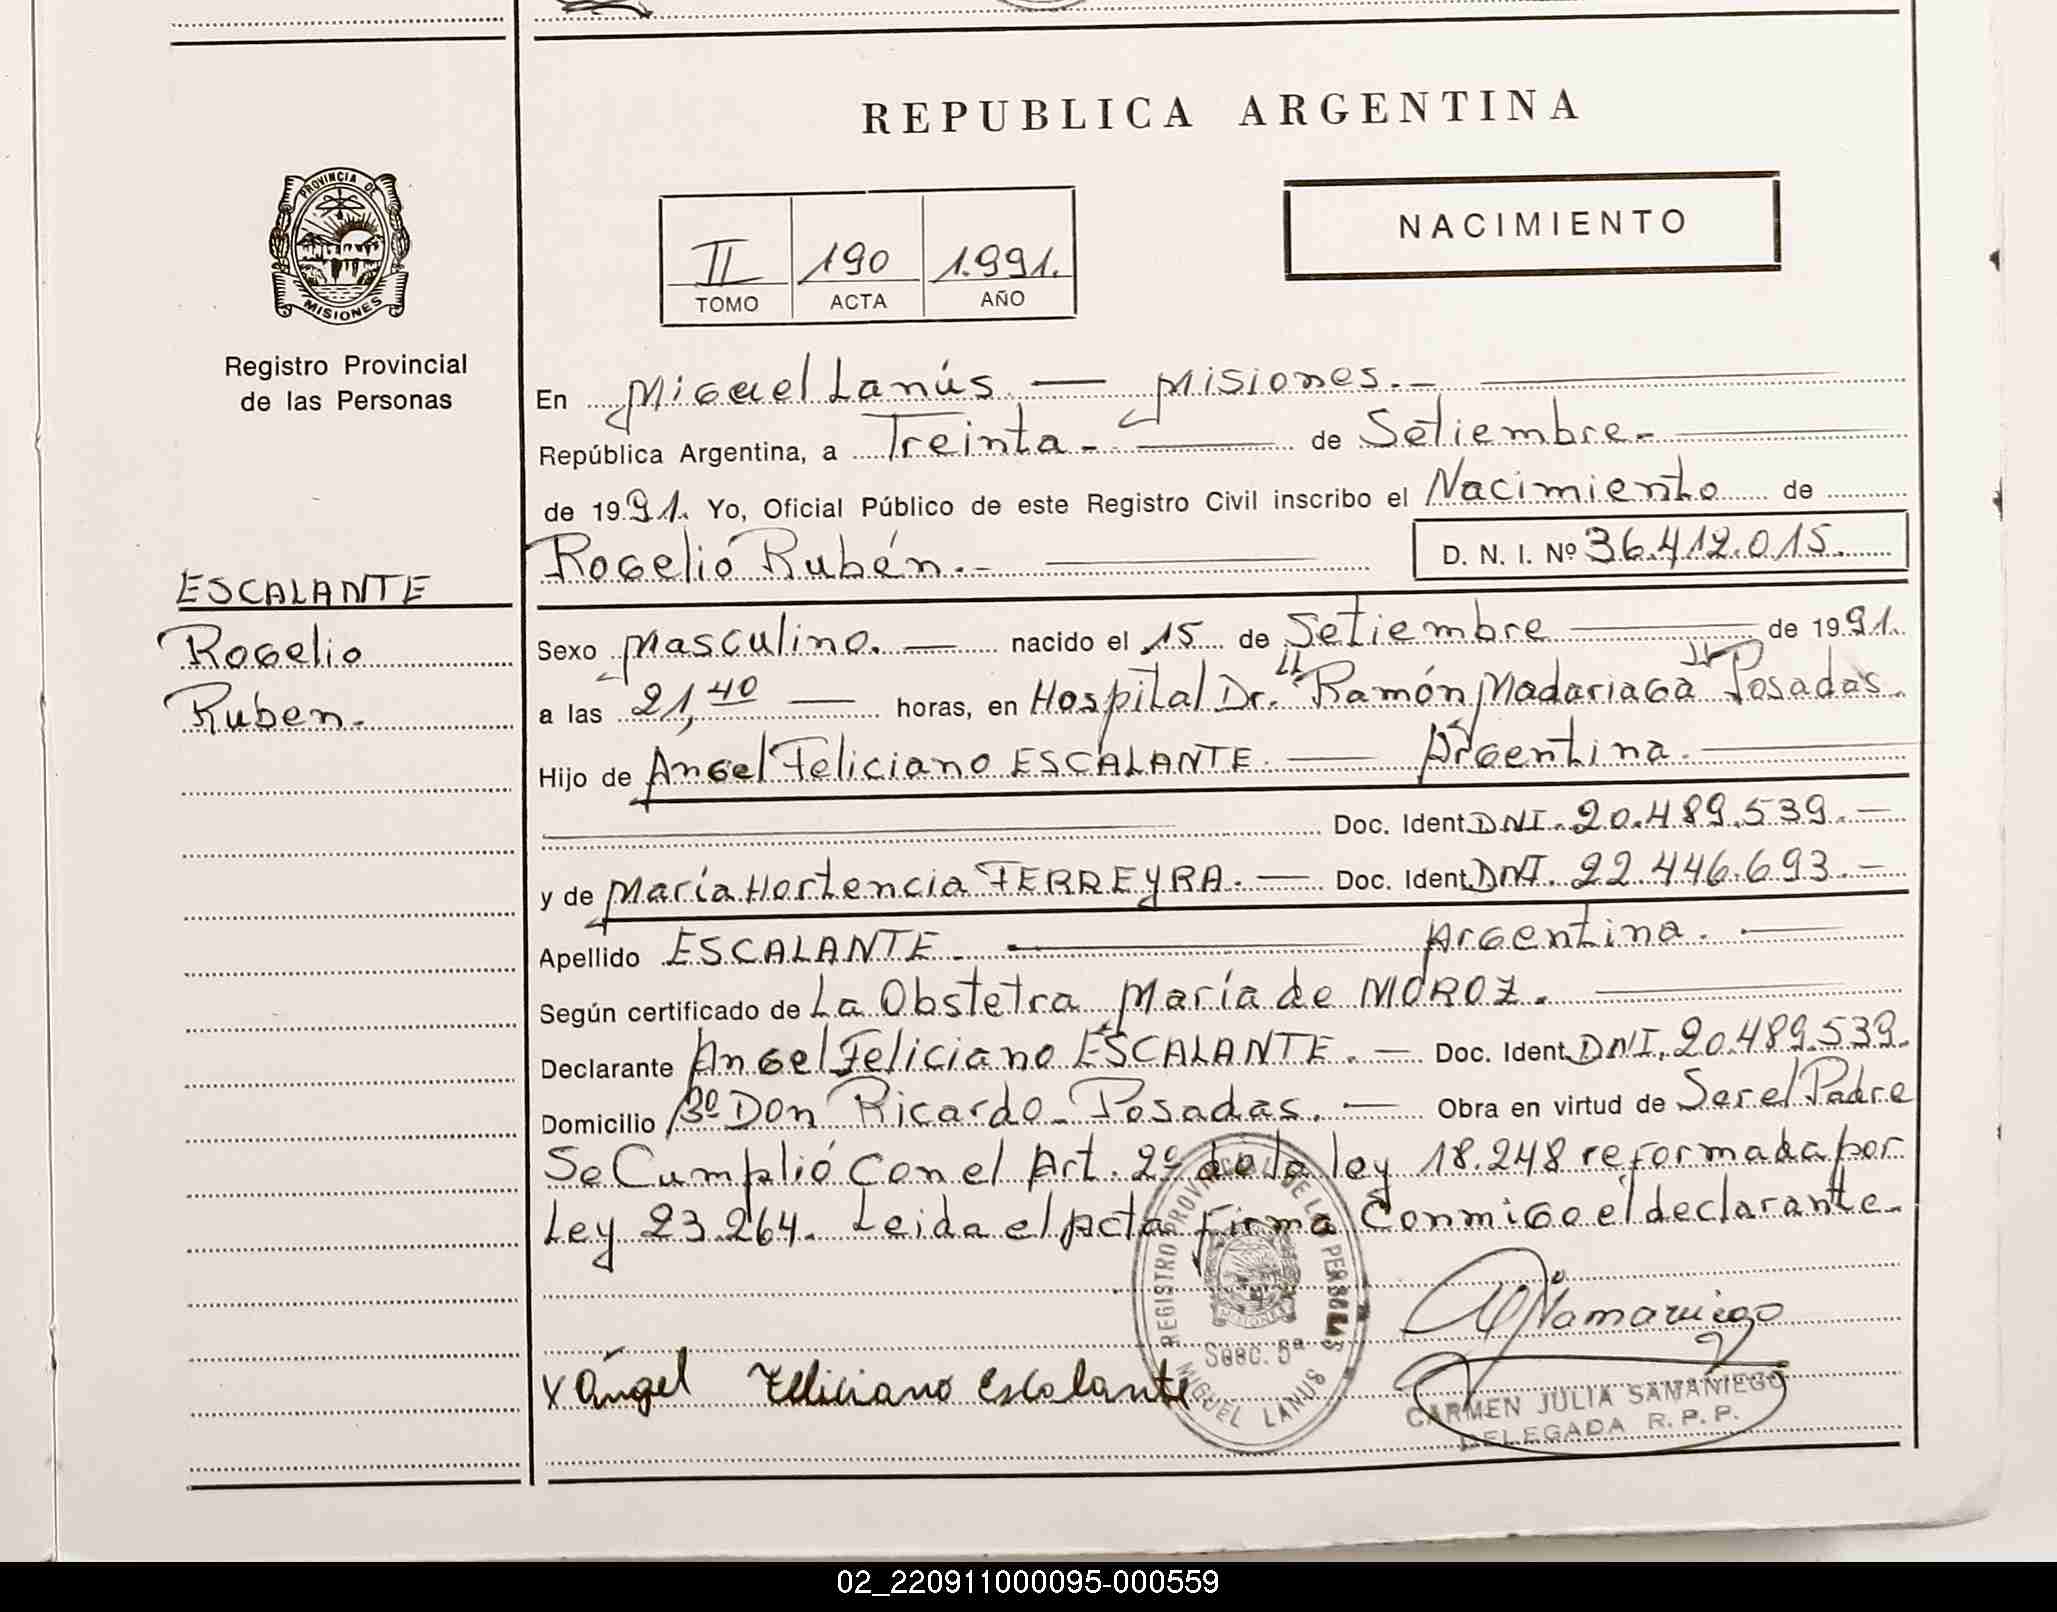 REPUBLICA ARGENTINA
PROVINCIA DE
MISIONES
NACIMIENTO
II 190 1.991.
TOMO ACTA AÑO
Registro Provincial
de las Personas
En Miguel Lanús. — Misiones.-
República Argentina, a Treinta- de Setiembre-
de 1991. Yo, Oficial Público de este Registro Civil inscribo el Nacimiento de
Rogelio Rubén.- D. N. I. Nº 36.412.015.
ESCALANTE
Rogelio
Ruben.-
Sexo Masculino. — nacido el 15 de Setiembre de 1991.
a las 21,40 — horas, en Hospital Dr. "Ramón Madariaga" Posadas.
Hijo de Angel Feliciano ESCALANTE. — Argentina.
Doc. Ident. DNI. 20.489.539.—
y de María Hortencia FERREYRA. — Doc. Ident. DNI. 22.446.693.—
Apellido ESCALANTE.- Argentina. —
Según certificado de La Obstetra María de MOROZ.
Declarante Angel Feliciano ESCALANTE. — Doc. Ident. DNI. 20.489.539.
Domicilio Bº Don Ricardo - Posadas. — Obra en virtud de Ser el Padre
Se Cumplió con el Art. 2º de la ley 18.248 reformada por
Ley 23.264. Leida el Acta firma Conmigo el declarante.
REGISTRO PROVINCIAL DE LAS PERSONAS
Secc. 5ª
MIGUEL LANUS
x Angel Feliciano Escalante
CARMEN JULIA SAMANIEGO
DELEGADA R. P. P.
02_220911000095-000559